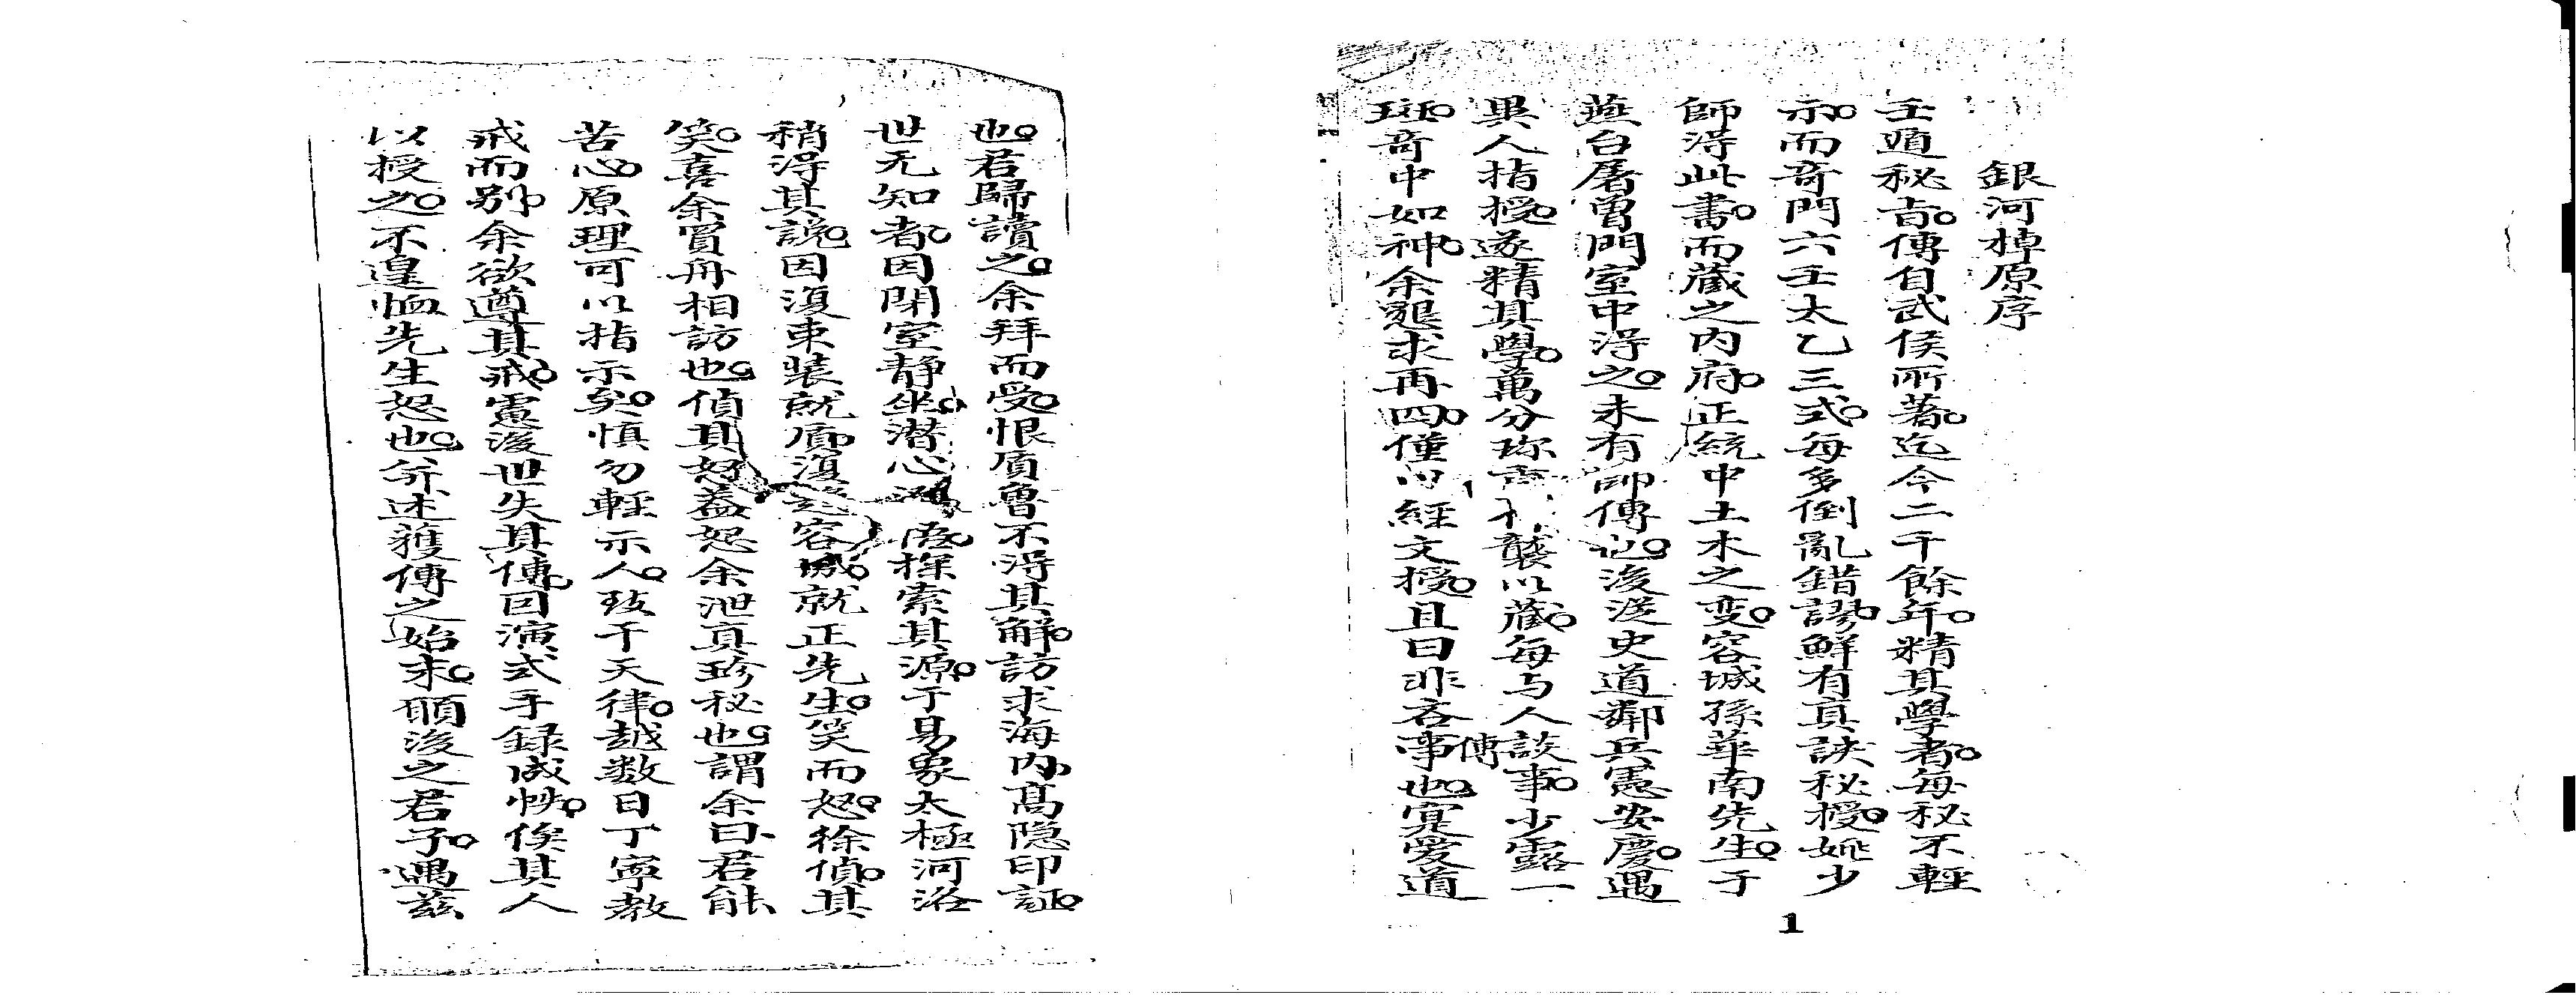 銀河棹原序
壬遁秘旨。傳自武侯所著。迄今二千餘年。精其學者。每秘不輕
示。而竒門六壬太乙三式。每多倒亂錯謬。鮮有真訣秘授。姚少
師淂此書。而蔵之内府。正統中土木之变。容城孫華南先生。于
燕台屠曽門室中淂之。未有師傳也。後逆史道鄰兵憲安慶。遇
異人指授。遂精其學。萬分珎襲以蔵。每与人談事。少露一
斑。竒中如神。余懇求再四。僅以經文授。且曰非吝傳事也。寔愛道
也。君歸讀之。余拜而受。恨质魯不淂其解。訪求海内髙隠印証。
世无知者。因閉室静坐。潜心。探索其源。于易象太極河洛
稍淂其說。因復束装就质。復容城。就正先生。笑而怒。徐偵其
笑。喜余買舟相訪也。偵其怒。盖怒余泄真珍秘也。謂余曰。君能
苦心。原理可以指示矣。慎勿輕示人。致干天律。越数日丁寧教
戒而别。余欲遵其戒。慮後世失其傳。因演式手録成帙。俟其人
以授之。不遑恤先生怒也。并述獲傳之始末。願後之君子。遇兹
1